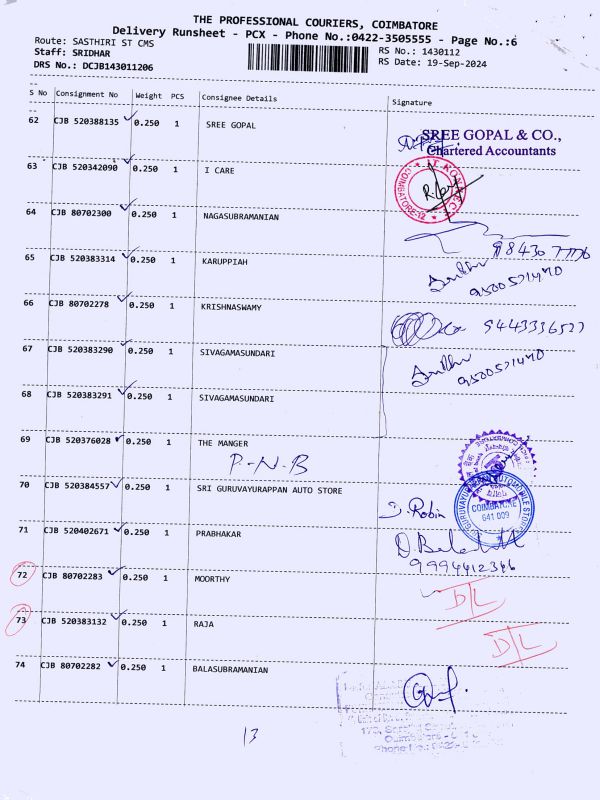 THE PROFESSIONAL COURIERS, COIMBATORE
Delivery Runsheet - PCX - Phone No.:0422-3505555 - Page No.:6
Route: SASTHIRI ST CMS
RS No.: 1430112
Staff: SRIDHAR
RS Date: 19-Sep-2024
DRS No.: DCJB143011206
S No Consignment No Weight PCS Consignee Details Signature
62 CJB 520388135 0.250 1 SREE GOPAL
SREE GOPAL & CO.,
Chartered Accountants
63 CJB 520342090 0.250 1 I CARE
COIMBATORE-12
64 CJB 80702300 0.250 1 NAGASUBRAMANIAN
65 CJB 520383314 0.250 1 KARUPPIAH
9500571470
66 CJB 80702278 0.250 1 KRISHNASWAMY
9443336527
67 CJB 520383290 0.250 1 SIVAGAMASUNDARI
9500571470
68 CJB 520383291 0.250 1 SIVAGAMASUNDARI
69 CJB 520376028 0.250 1 THE MANGER
P-N-B
70 CJB 520384557 0.250 1 SRI GURUVAYURAPPAN AUTO STORE
COIMBATORE
641 009
Robin
71 CJB 520402671 0.250 1 PRABHAKAR
72 CJB 80702283 0.250 1 MOORTHY
D/L
73 CJB 520383132 0.250 1 RAJA
D/L
74 CJB 80702282 0.250 1 BALASUBRAMANIAN
13